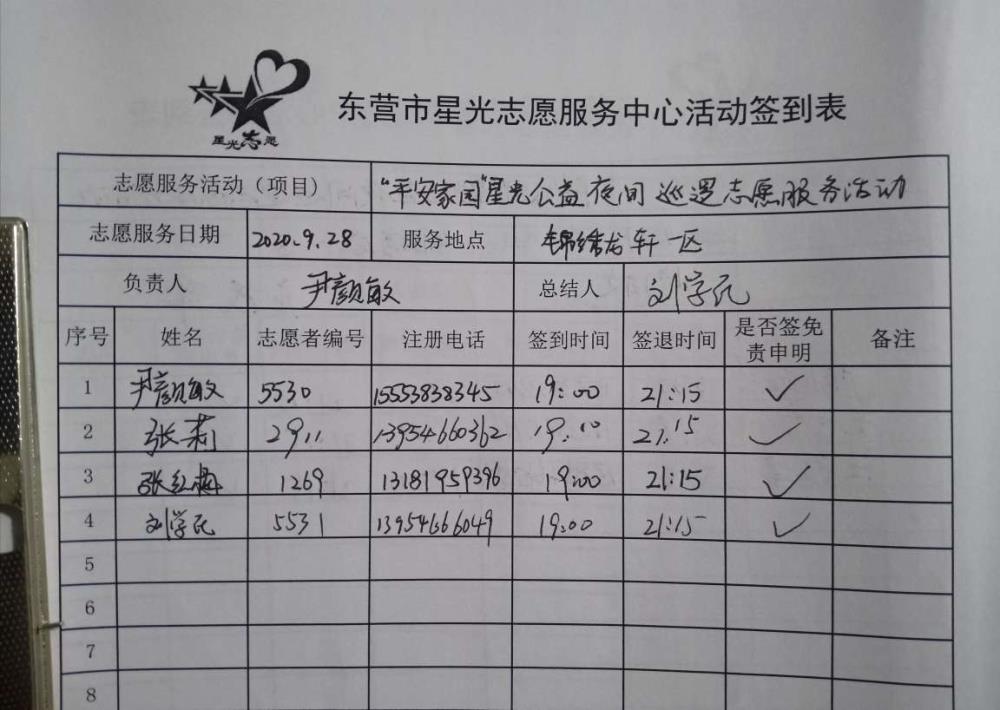 星光志愿
东营市星光志愿服务中心活动签到表
志愿服务活动（项目） "平安家园"星光公益夜间巡逻志愿服务活动
志愿服务日期 2020.9.28 服务地点 锦绣龙轩一区
负责人 尹颜敏 总结人 刘学
序号 姓名 志愿者编号 注册电话 签到时间 签退时间 是否签免责申明 备注
1 尹颜敏 5530 15553838345 19:00 21:15 ✓
2 张莉 2911 13954660362 19:10 21:15 ✓
3 张红梅 1269 13181959396 19:00 21:15 ✓
4 刘学 5531 13954666049 19:00 21:15 ✓
5
6
7
8